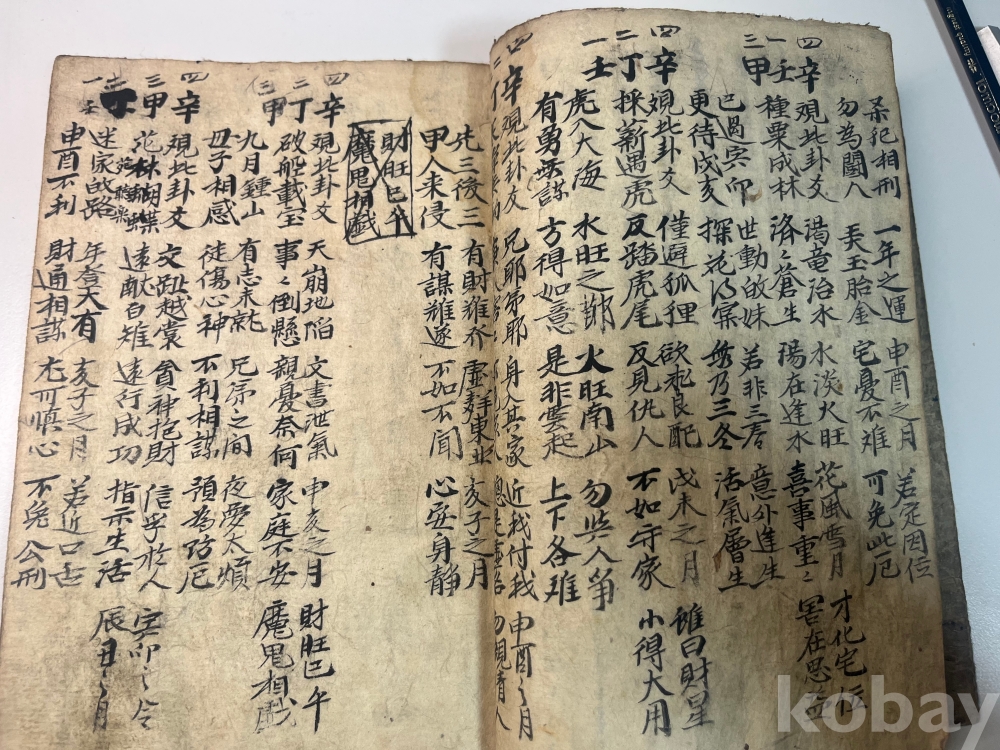 犯相刑 一年之運 申酉之月 若定因位
勿為鬪人 天玉胎金 宅憂不难 可免此厄
四辛 覌此卦爻 湯竜治水 水淡火旺 花風雪月 才化宅伝
一壬 種粟成林 洛之蒼生 陽在逢水 喜事重〻 害在思
三甲 已過寅卯 世動敀妹 若非三 意外進生
更待戌亥 探花得實 無乃三冬 活氣層生
四辛 覌此卦爻 僅避狐狸 欲良配 戊未之月 雖曰財星
二丁 採薪遇虎 反踏虎尾 反見仇人 不如守家 小得大用
一壬 虎入大海 水旺之鄕 火旺南山 勿与人争
有勇無謀 方得如意 是非雲起 上下各难
四辛 覌此卦爻 兄耶弟耶 身入其家 近我付我 申酉之月
先三後三 有財難介 虛舞東北 亥子之月
甲人未侵 有謀難遂 不如不闻 心安身静
財旺巳午
魔鬼相戱
四辛 覌此卦爻 天崩地陷 文書泄氣 申亥之月 財旺巳午
二丁 破船載宝 事〻倒懸 親憂奈何 家庭不安 魔鬼相戱
三甲 九月鍾山 有志未就 兄弟之间 夜夢太煩
毋子相感 徒傷心神 不利相謀 預為防厄
四辛 覌此卦爻 交趾越裳 貧神抱財 信乎於人 寅卯之令
三甲 花林胡蝶 遠献白雉 遠行成功 指示生活 辰月
一壬 迷家敀路 年登大有 亥子之月 若近口舌
申酉不利 財通相謀 尤可慎心 不免公刑
kobay